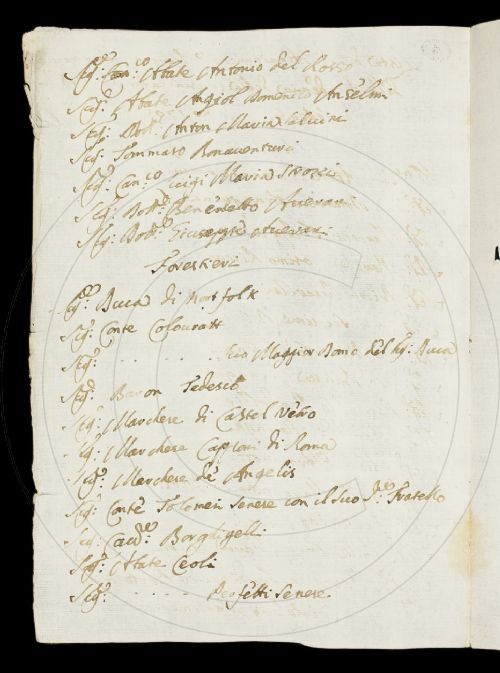 Sig.re Can.co Abate Antonio del Rosso
Sig.e Abate Angiol Domenico Anselmi
Sig.e Dott.e Anton Maria Salvini
Sig.e Tommaso Bonaventuri
Sig.e Can.co Luigi Maria Strozzi
Sig.e Dott.e Benedetto Averani
Sig.e Dott.e Giuseppe Averani
Forestieri
Sig.re Duca di Nortfolk
Sig.e Conte
Sig.e . . . . . . Suo Maggior Domo del Sig.e Duca
Sig.e Baron Tedesco
Sig.e Marchese di Castel
Sig.e Marchese Capponi di Roma
Sig.e Marchese de Angelis
Sig.e Conte Tolomei Senese con il suo S.re Fratello
Sig.e Cav.re
Sig.e Abate Ceoli
Sig.e . . . . . . Perfetti Senese